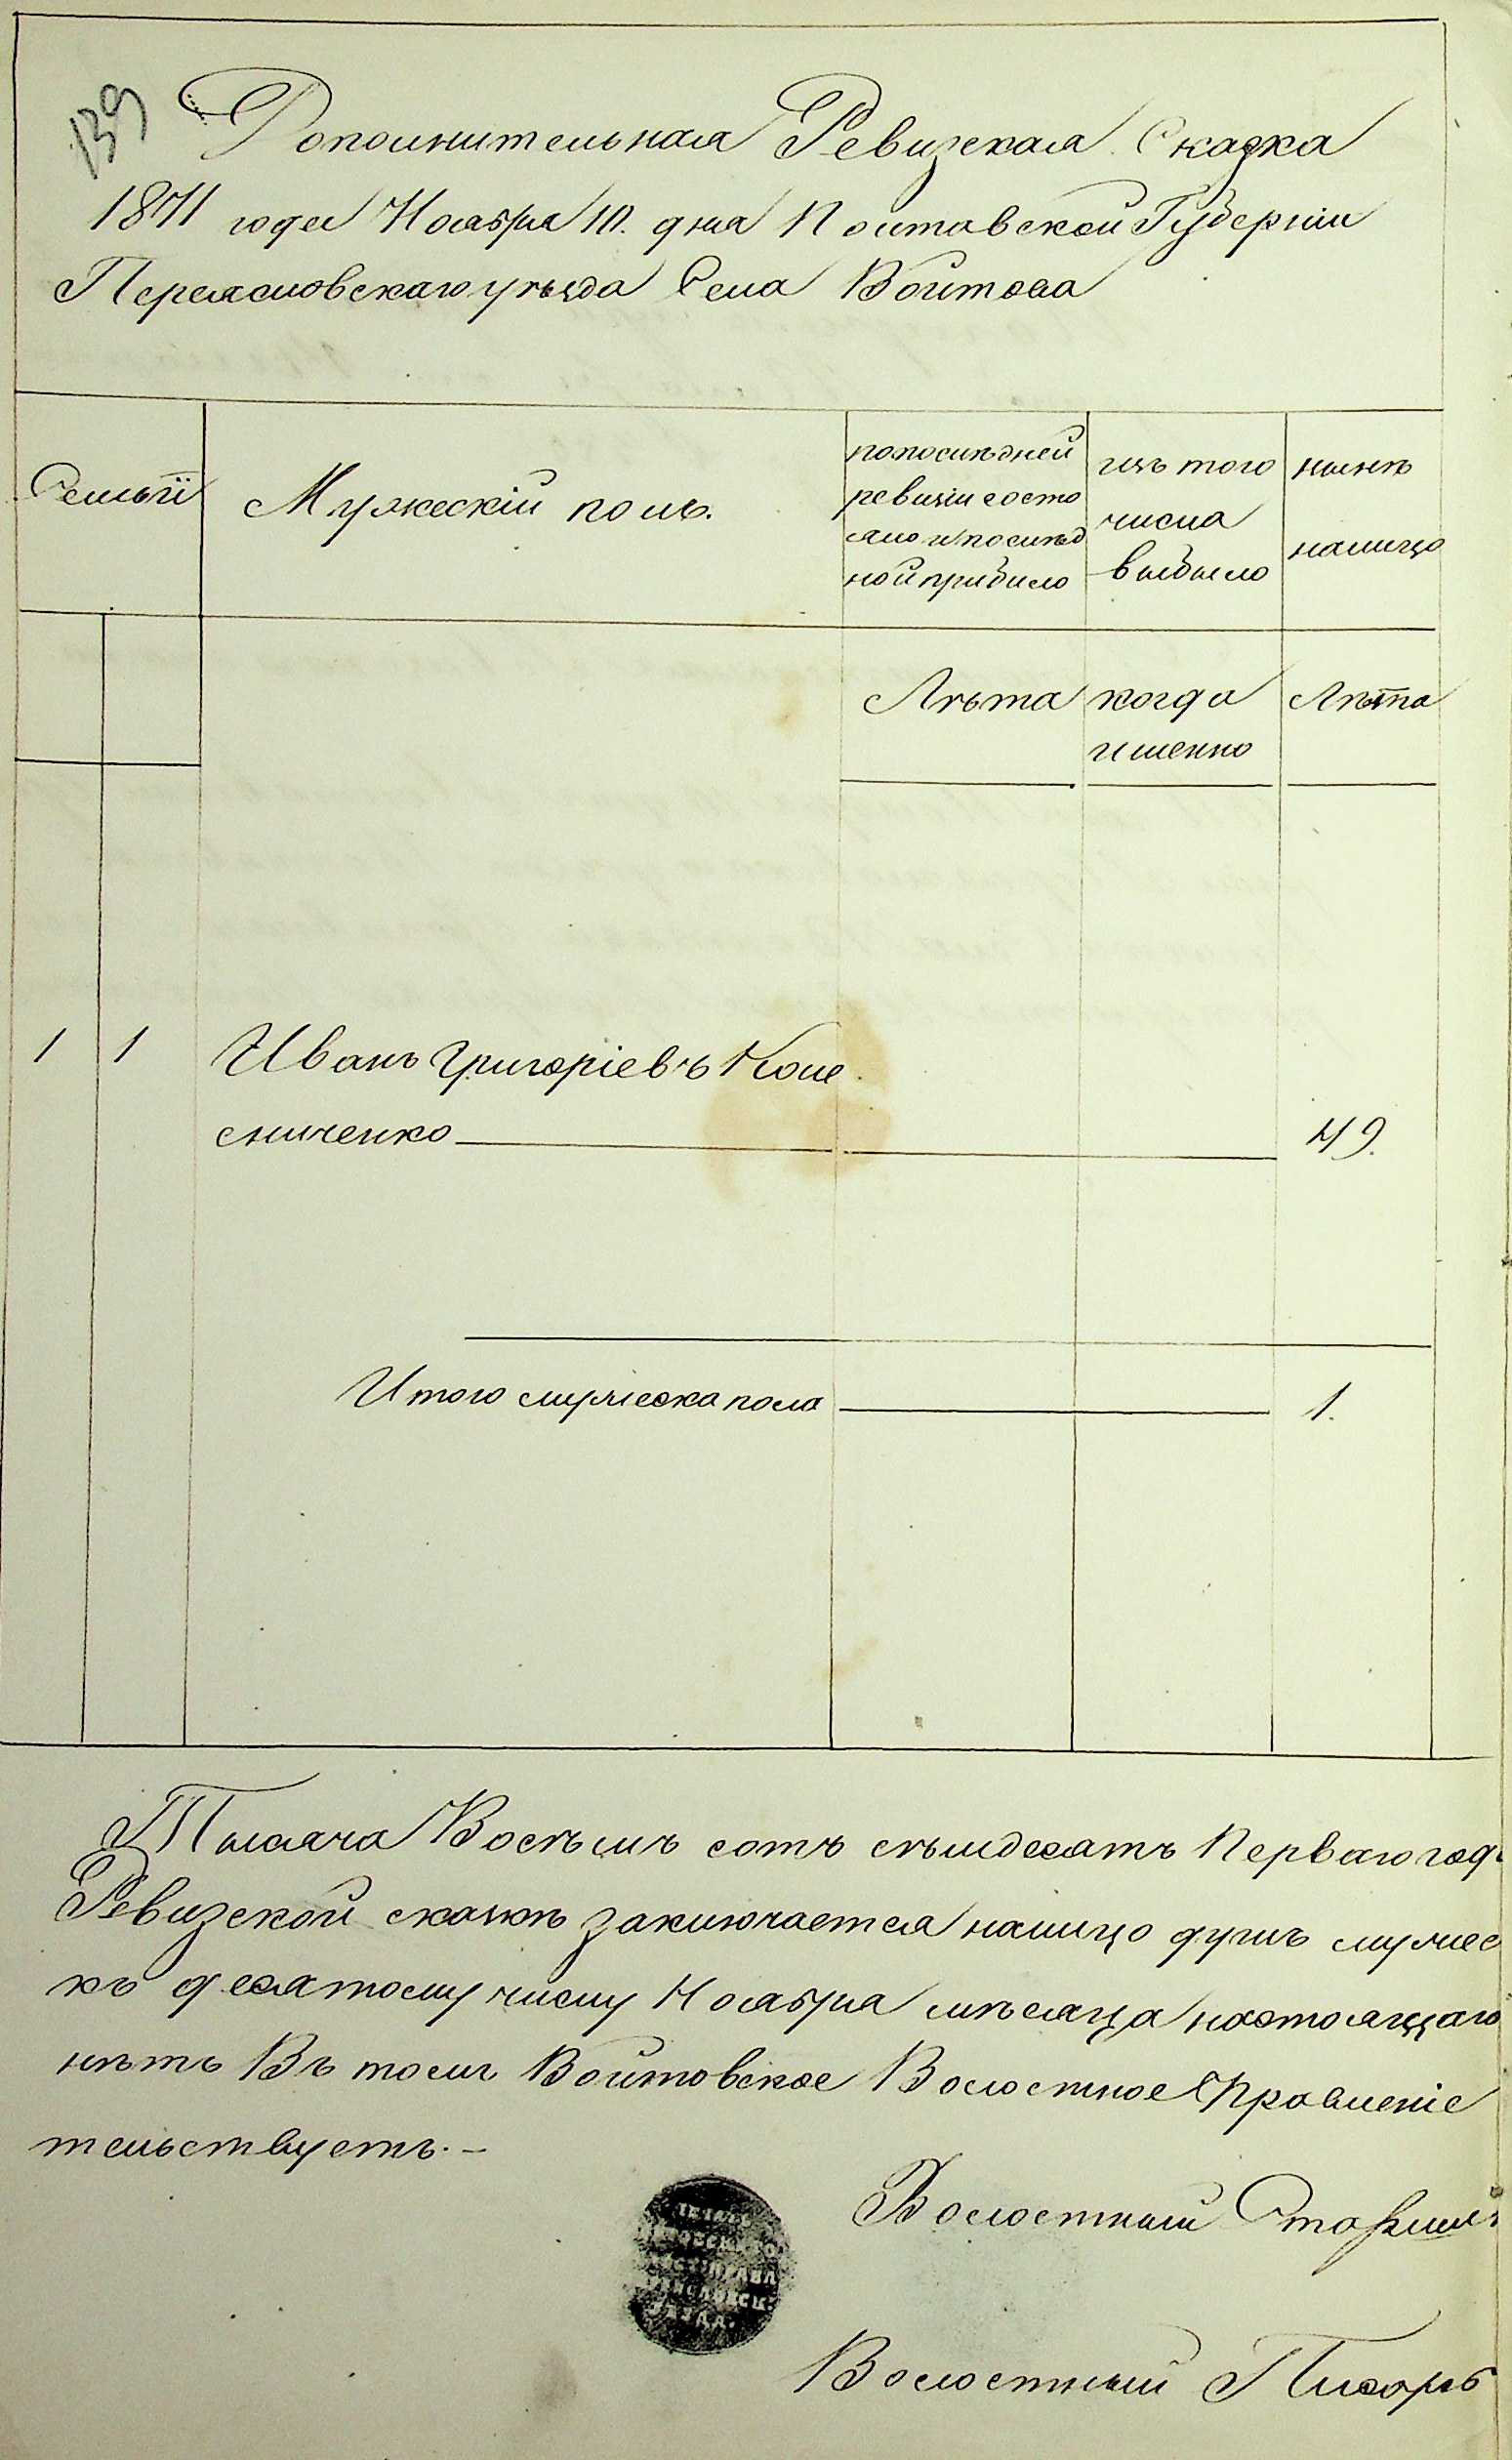 139
Дополнительная Ревизская Сказка
1871 года Ноября 10. дня Полтавской Губерніи
Переяславскаго уѣзда Села Войтова
Семьи
Мужескій полъ.
по послѣдней
ревизіи состо
яло и послѣд
ной прибыло
изъ того
числа
выбыло
нынѣ
налицо
Лѣта
когда
именно
Лѣта
1 1 Иванъ Григоріевъ Коле
сниченко 49.
Итого мужеска пола 1.
Тысяча Восѣмъ сотъ сѣмдесятъ Перваго год
Ревизской сказкѣ заключается налицо душъ мужес
къ десятому числу Ноября мѣсяца настоящаго
нѣтъ Въ томъ Войтовское Волостное Правленіе
тельствуетъ.-
Волостный Старшин
Волостный Писарь